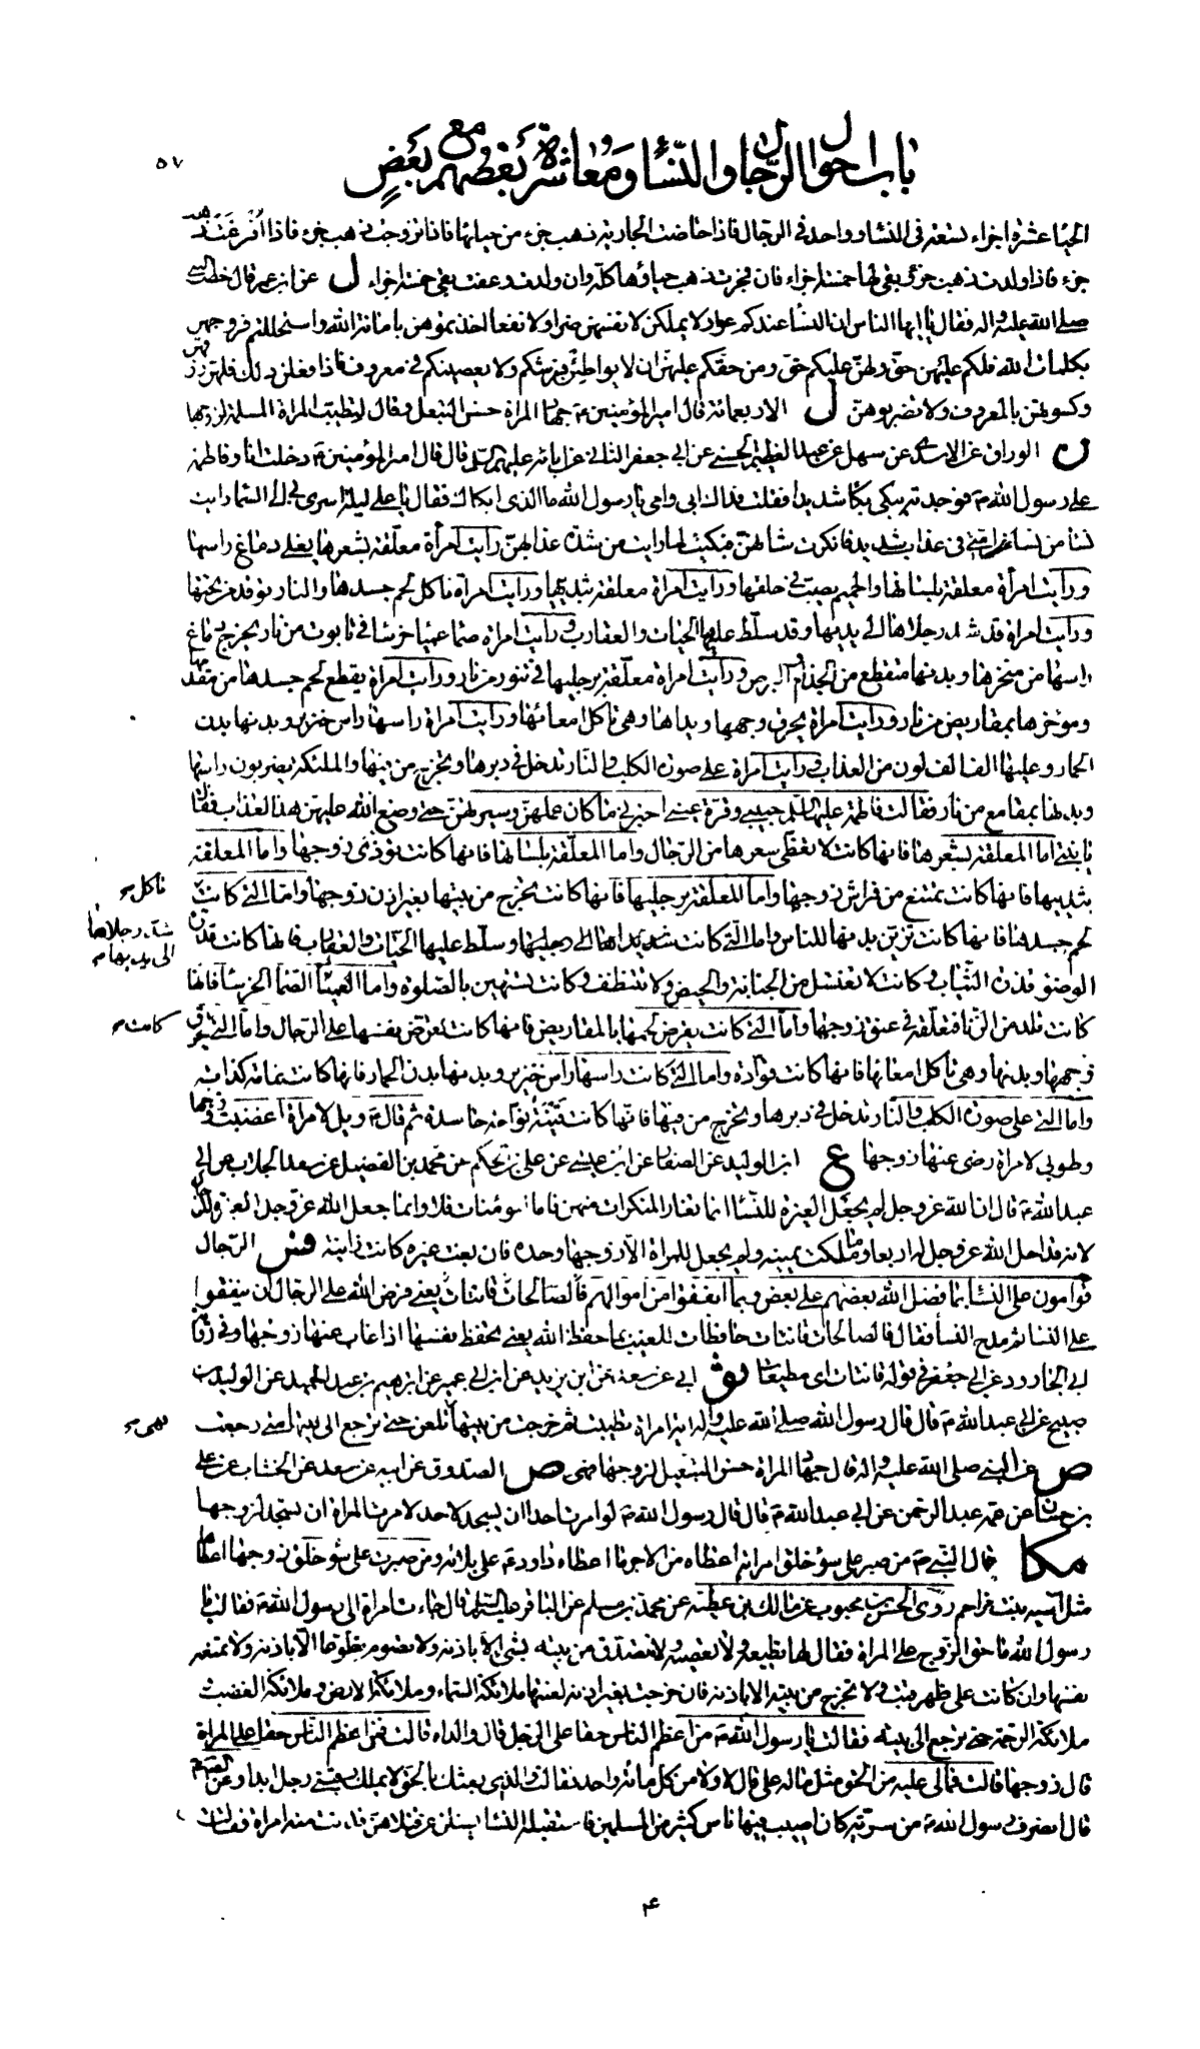 باب احوال الرجال والنساء ومعاشرة بعضهم مع بعض
٥٧
الحياء عشرة اجزاء تسعة فى النساء وواحد فى الرجال فاذا حاضت الجارية ذهب جزء من حيائها فاذا تزوجت ذهب جزء فاذا افترعت ذهب
جزء فاذا ولدت ذهب جزء وبقى لها خمسة اجزاء فان فجرت ذهب حياؤها كله وان ولدت وعفت بقى خمسة اجزاء ل عن ابن عمر قال خطب النبى
صلى الله عليه واله فقال يا ايها الناس ان النساء عندكم عوار لا يملكن لانفسهن ضرا ولا نفعا اخذتموهن بامانة الله واستحللتم فروجهن
بكلمات الله فلكم عليهن حق ولهن عليكم حق ومن حقكم عليهن ان لا يوطئن فرشكم ولا يعصينكم فى معروف فاذا فعلن ذلك فلهن رزقهن
وكسوتهن بالمعروف ولا تضربوهن ل الاربعمائة قال امير المؤمنين ع جهاد المراة حسن التبعل وقال لتطيب المراة المسلمة لزوجها
ن الوراق عن الاسدى عن سهل عن عبد العظيم الحسنى عن ابى جعفر الثانى عن ابائه عليهم السلم قال قال امير المؤمنين ع دخلت انا وفاطمة
على رسول الله ص فوجدته يبكى بكاء شديدا فقلت فداك ابى وامى يا رسول الله ما الذى ابكاك فقال يا على ليلة اسرى بى الى السماء رايت
نساء من نساء امتى فى عذاب شديد فانكرت شانهن فبكيت لما رايت من شدة عذابهن رايت امرأة معلقة بشعرها يغلى دماغ راسها
ورايت امرأة معلقة بلسانها والحميم يصب فى حلقها ورايت امراة معلقة بثدييها ورايت امراة تاكل لحم جسدها والنار توقد من تحتها
ورايت امراة قد شد رجلاها الى يديها وقد سلط عليها الحيات والعقارب ورايت امراة صماء عمياء خرساء فى تابوت من نار يخرج دماغ
راسها من منخرها وبدنها متقطع من الجذام والبرص ورايت امراة معلقة برجليها فى تنور من نار ورايت امراة يقطع لحم جسدها من مقدمها
ومؤخرها بمقاريض من نار ورايت امراة يحرق وجهها ويداها وهى تاكل امعائها ورايت امراة راسها راس خنزير وبدنها بدن
الحمار وعليها الف الف لون من العذاب ورايت امراة على صورة الكلب والنار تدخل فى دبرها وتخرج من فيها والملئكة يضربون راسها
وبدنها بمقامع من نار فقالت فاطمة عليها السلم حبيبى وقرة عينى اخبرنى ما كان عملهن وسيرتهن حتى وضع الله عليهن هذا العذاب فقال
يا بنتى اما المعلقة بشعرها فانها كانت لا تغطى شعرها من الرجال واما المعلقة بلسانها فانها كانت توذى زوجها واما المعلقة
بثدييها فانها كانت تمتنع من فراش زوجها واما المعلقة برجليها فانها كانت تخرج من بيتها بغير اذن زوجها واما التى كانت
تاكل
لحم جسدها فانها كانت تزين بدنها للناس واما التى كانت شد يداها الى رجليها وسلط عليها الحيات والعقارب فانها كانت قذرة
شد رجلاها
الى يديها
الوضوء قذرة الثياب وكانت لا تغتسل من الجنابة والحيض ولا تتنظف وكانت تستهين بالصلوة واما العمياء الصماء الخرساء فانها
كانت تلد من الزنا فتعلقه فى عنق زوجها واما التى كانت يقرض لحمها بالمقاريض فانها كانت تعرض نفسها على الرجال واما التى يحرق
كانت
وجهها وبدنها وهى تاكل امعائها فانها كانت قوادة واما التى كانت راسها راس خنزير وبدنها بدن الحمار فانها كانت نمامة كذابة
واما التى على صورة الكلب والنار تدخل فى دبرها وتخرج من فيها فانها كانت قينة نواحة حاسدة ثم قال ع ويل لامراة اغضبت زوجها
وطوبى لامراة رضى عنها زوجها ع ابن الوليد عن الصفار عن ابن عيسى عن على بن الحكم عن محمد بن الفضيل عن سعد الجلاب عن ابى
عبد الله ع قال ان الله عز وجل لم يجعل الغيرة للنساء انما تغار المنكرات منهن فاما المؤمنات فلا وانما جعل الله عز وجل الغيرة للرجال
لانه قد احل الله عز وجل له اربعا وما ملكت يمينه ولم يجعل للمراة الا زوجها وحده فان بغت غيره كانت زانية فس الرجال
قوامون على النساء بما فضل الله بعضهم على بعض وبما انفقوا من اموالهم فالصالحات قانتات يعنى فرض الله على الرجال ان ينفقوا
على النساء ثم مدح النساء فقال فالصالحات قانتات حافظات للغيب بما حفظ الله يعنى تحفظ نفسها اذا غاب عنها زوجها وفى رواية
ابى الجارود عن ابى جعفر فى قوله قانتات اى مطيعات ثو ابى عن سعد عن ابن يزيد عن ابن ابى عمير عن ابرهيم بن عبد الحميد عن الوليد بن
صبيح عن ابى عبد الله ع قال قال رسول الله صلى الله عليه واله اية امراة تطيبت ثم خرجت من بيتها تلعن حتى ترجع الى بيتها متى رجعت
فهى
ص عن النبى صلى الله عليه واله قال جهاد المراة حسن التبعل لزوجها ص الصدوق عن ابيه عن سعد عن الخشاب عن على
بن حسان عن عمه عبد الرحمن عن ابى عبد الله ع قال قال رسول الله ص لو امرت احدا ان يسجد لاحد لامرت المراة ان تسجد لزوجها
مكا قال النبى ص من صبر على سوء خلق امراته اعطاه من الاجر ما اعطاه داود ع على بلائه ومن صبرت على سوء خلق زوجها اعطاها
مثل اسية بنت مزاحم روى الحسن بن محبوب عن مالك بن عطية عن محمد بن مسلم عن الباقر عليه السلم قال جاءت امراة الى رسول الله ص فقالت يا
رسول الله ما حق الزوج على المراة فقال لها تطيعه ولا تعصيه ولا تتصدق من بيته بشئ الا باذنه ولا تصوم تطوعا الا باذنه ولا تمنعه
نفسها وان كانت على ظهر قتب ولا تخرج من بيته الا باذنه فان خرجت بغير اذنه لعنتها ملائكة السماء وملائكة الارض وملائكة الغضب
وملائكة الرحمة حتى ترجع الى بيته فقالت يا رسول الله ص من اعظم الناس حقا على الرجل قال والداه قالت فمن اعظم الناس حقا على المراة
قال زوجها قالت فمالى عليه من الحق مثل ماله على قال لا ولا من كل مائة واحد فقالت والذى بعثك بالحق لا يملك رقبتى رجل ابدا وعن الصادق ع
قال انصرف رسول الله ص من سرية كان اصيب فيها ناس كثير من المسلمين فاستقبله النساء يسئلن عن قتلاهن فدنت منه امراة فقالت
۴